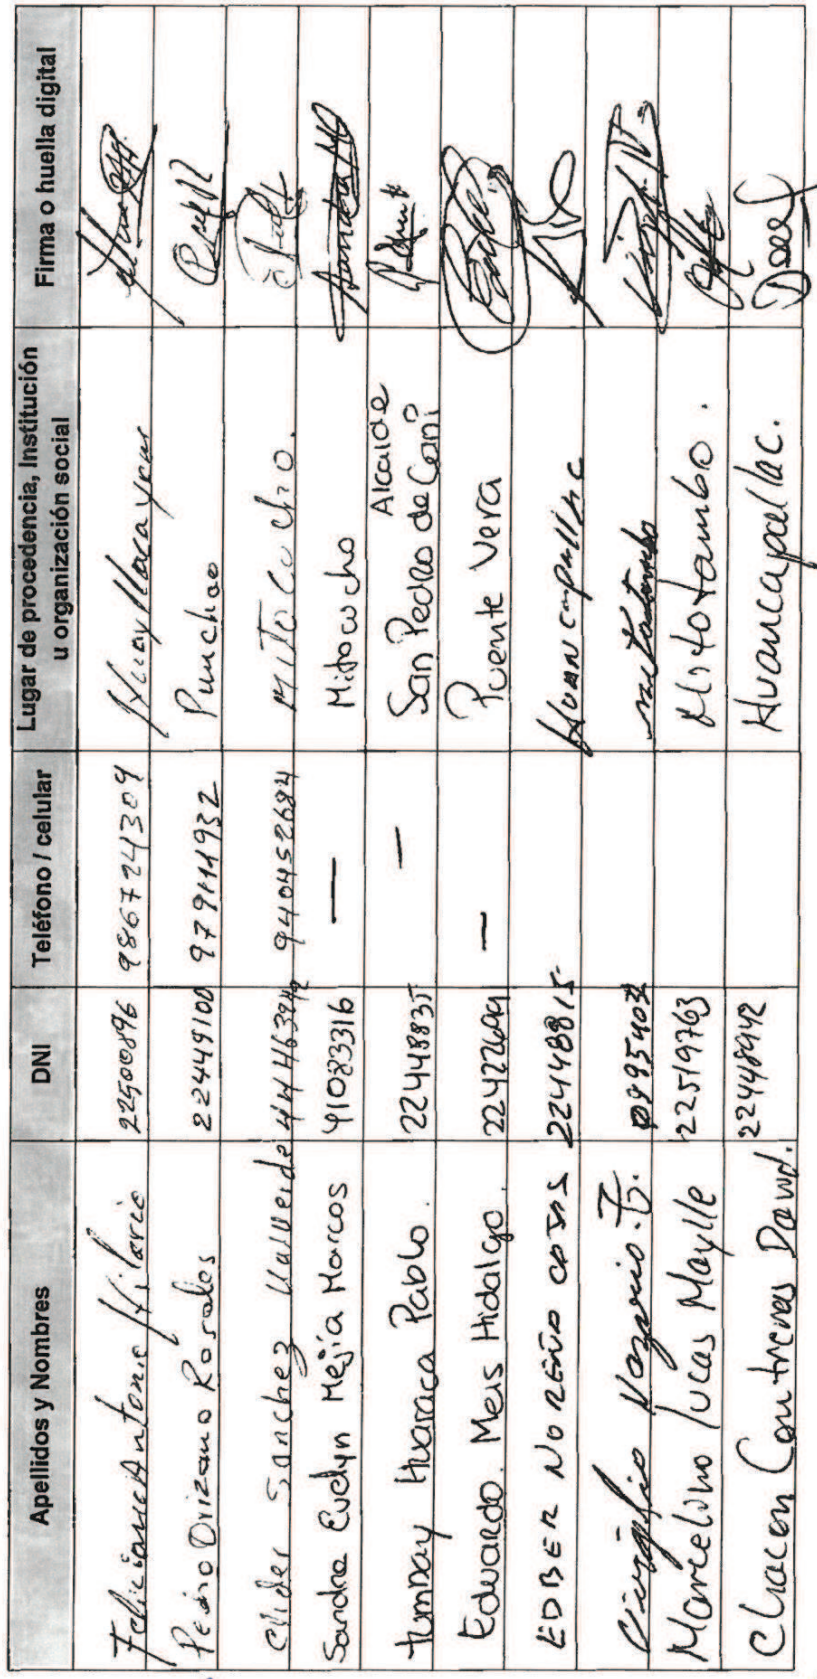 Apellidos y Nombres DNI Teléfono / celular Lugar de procedencia, Institución u organización social Firma o huella digital
Feliciano Antonio Hilario 22500896 986724309 Huayllacayan
Pedro Orizano Rosales 22449100 979111932 Punchao
Clider Sanchez Valverde 44463942 940452684 Mitocucho.
Sandra Evelyn Mejía Marcos 41083316 — Mitocucho
Tumbay Huaraca Pablo. 22448835 — Alcalde San Pedro de Cani
Eduardo. Meis Hidalgo. 22422699 — Puente Vera
EDBER NOREÑA 22448815
Virgilio
Marcelino Lucas Maylle 22519763 Mitotambo.
Chacon Contreras David. 22448942 Huancapallac.